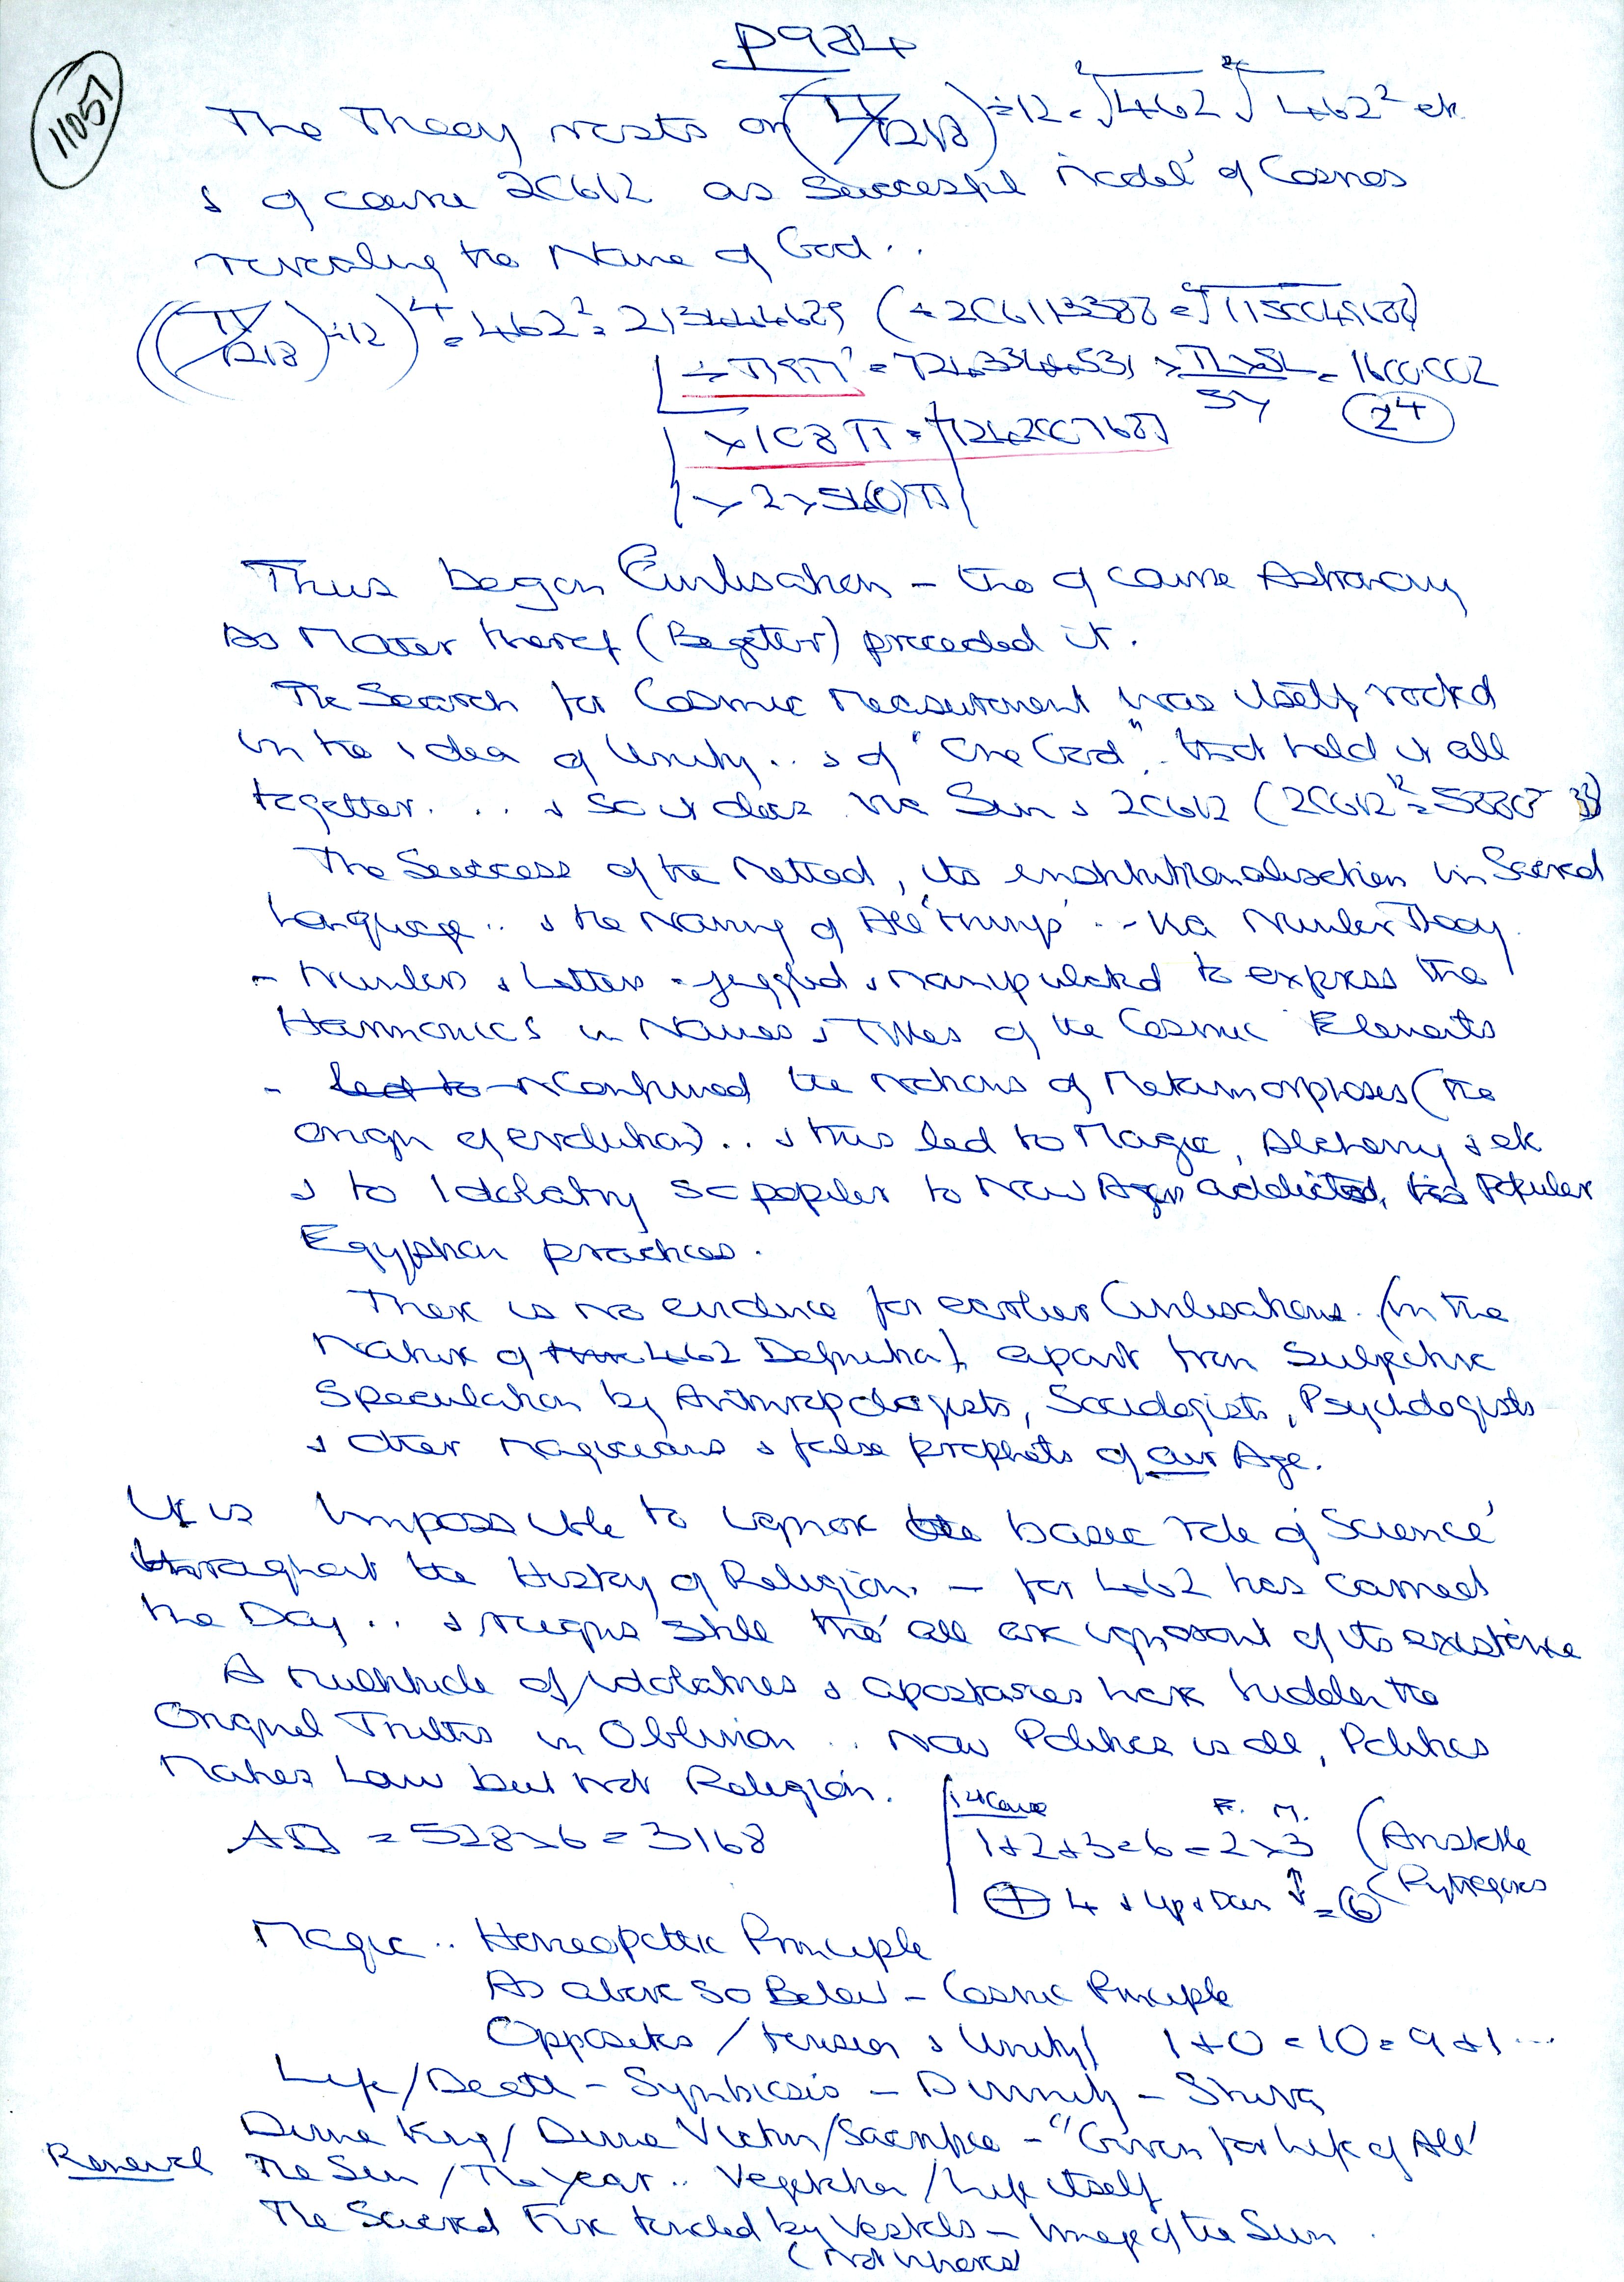 P984
11057
The Theory rests on (π/1218) ÷12 = ²√462 ²√462² etc
& of course 20612 as Successful 'Model' of Cosmos
revealing the Name of God..
((π/1218) ÷12)⁴ = 462² = 213444
= 1600.002
2⁴
× 108 π =
× 2 × 54(0) π
Thus began Civilisation – tho of course Astronomy
As Mater thereof (Begetter) preceded it.
The Search for Cosmic Measurement was itself rooted
in the idea of Unity.. & of "One God" that held it all
together. ... & so it does via Sun & 20612 (20612
The Success of the Method, its institutionalisation in Sacred
Language.. & the Naming of All 'things' .. via Number Theory.
- Numbers & Letters - juggled & manipulated to express the
Harmonics in Names & Titles of the Cosmic Elements
- led to confirmed the notions of Metamorphoses (the
origin of evolution).. & thus led to Magic, Alchemy & etc
& to Idolatry so popular to New Age addicted, Popular
Egyptian practices.
There is no evidence for earlier Civilisations. (in the
Nature of 462 Definition), apart from Subjective
Speculation by Anthropologists, Sociologists, Psychologists
& other magicians & false prophets of our Age.
It is impossible to ignore the basic role of 'Science'
throughout the History of Religion. – for 462 has carried
the Day.. & reigns still tho' all are ignorant of its existence
A multitude of idolatries & apostasies have hidden the
Original Truths in Oblivion .. Now Politics is all, Politics
Makes Law but not Religion.
= 528×6 = 3168
F. M.
1+2+3=6 = 2×3 (Aristotle
⊕ 4 & up & down ↕ = 6 (Pythagoras
Magic .. Homeopathic Principle
As above So Below – Cosmic Principle
Opposites / tension & Unity / 1+0 = 10 = 9+1 ...
Life/Death – Symbiosis – Divinity – Shiva
Divine King / Divine Victim/Sacrifice – "Given for Life of All"
Renewal The Sun / The Year.. Vegetation / Life itself
The Sacred Fire tended by Vestals – Image of the Sun.
(Not whores)